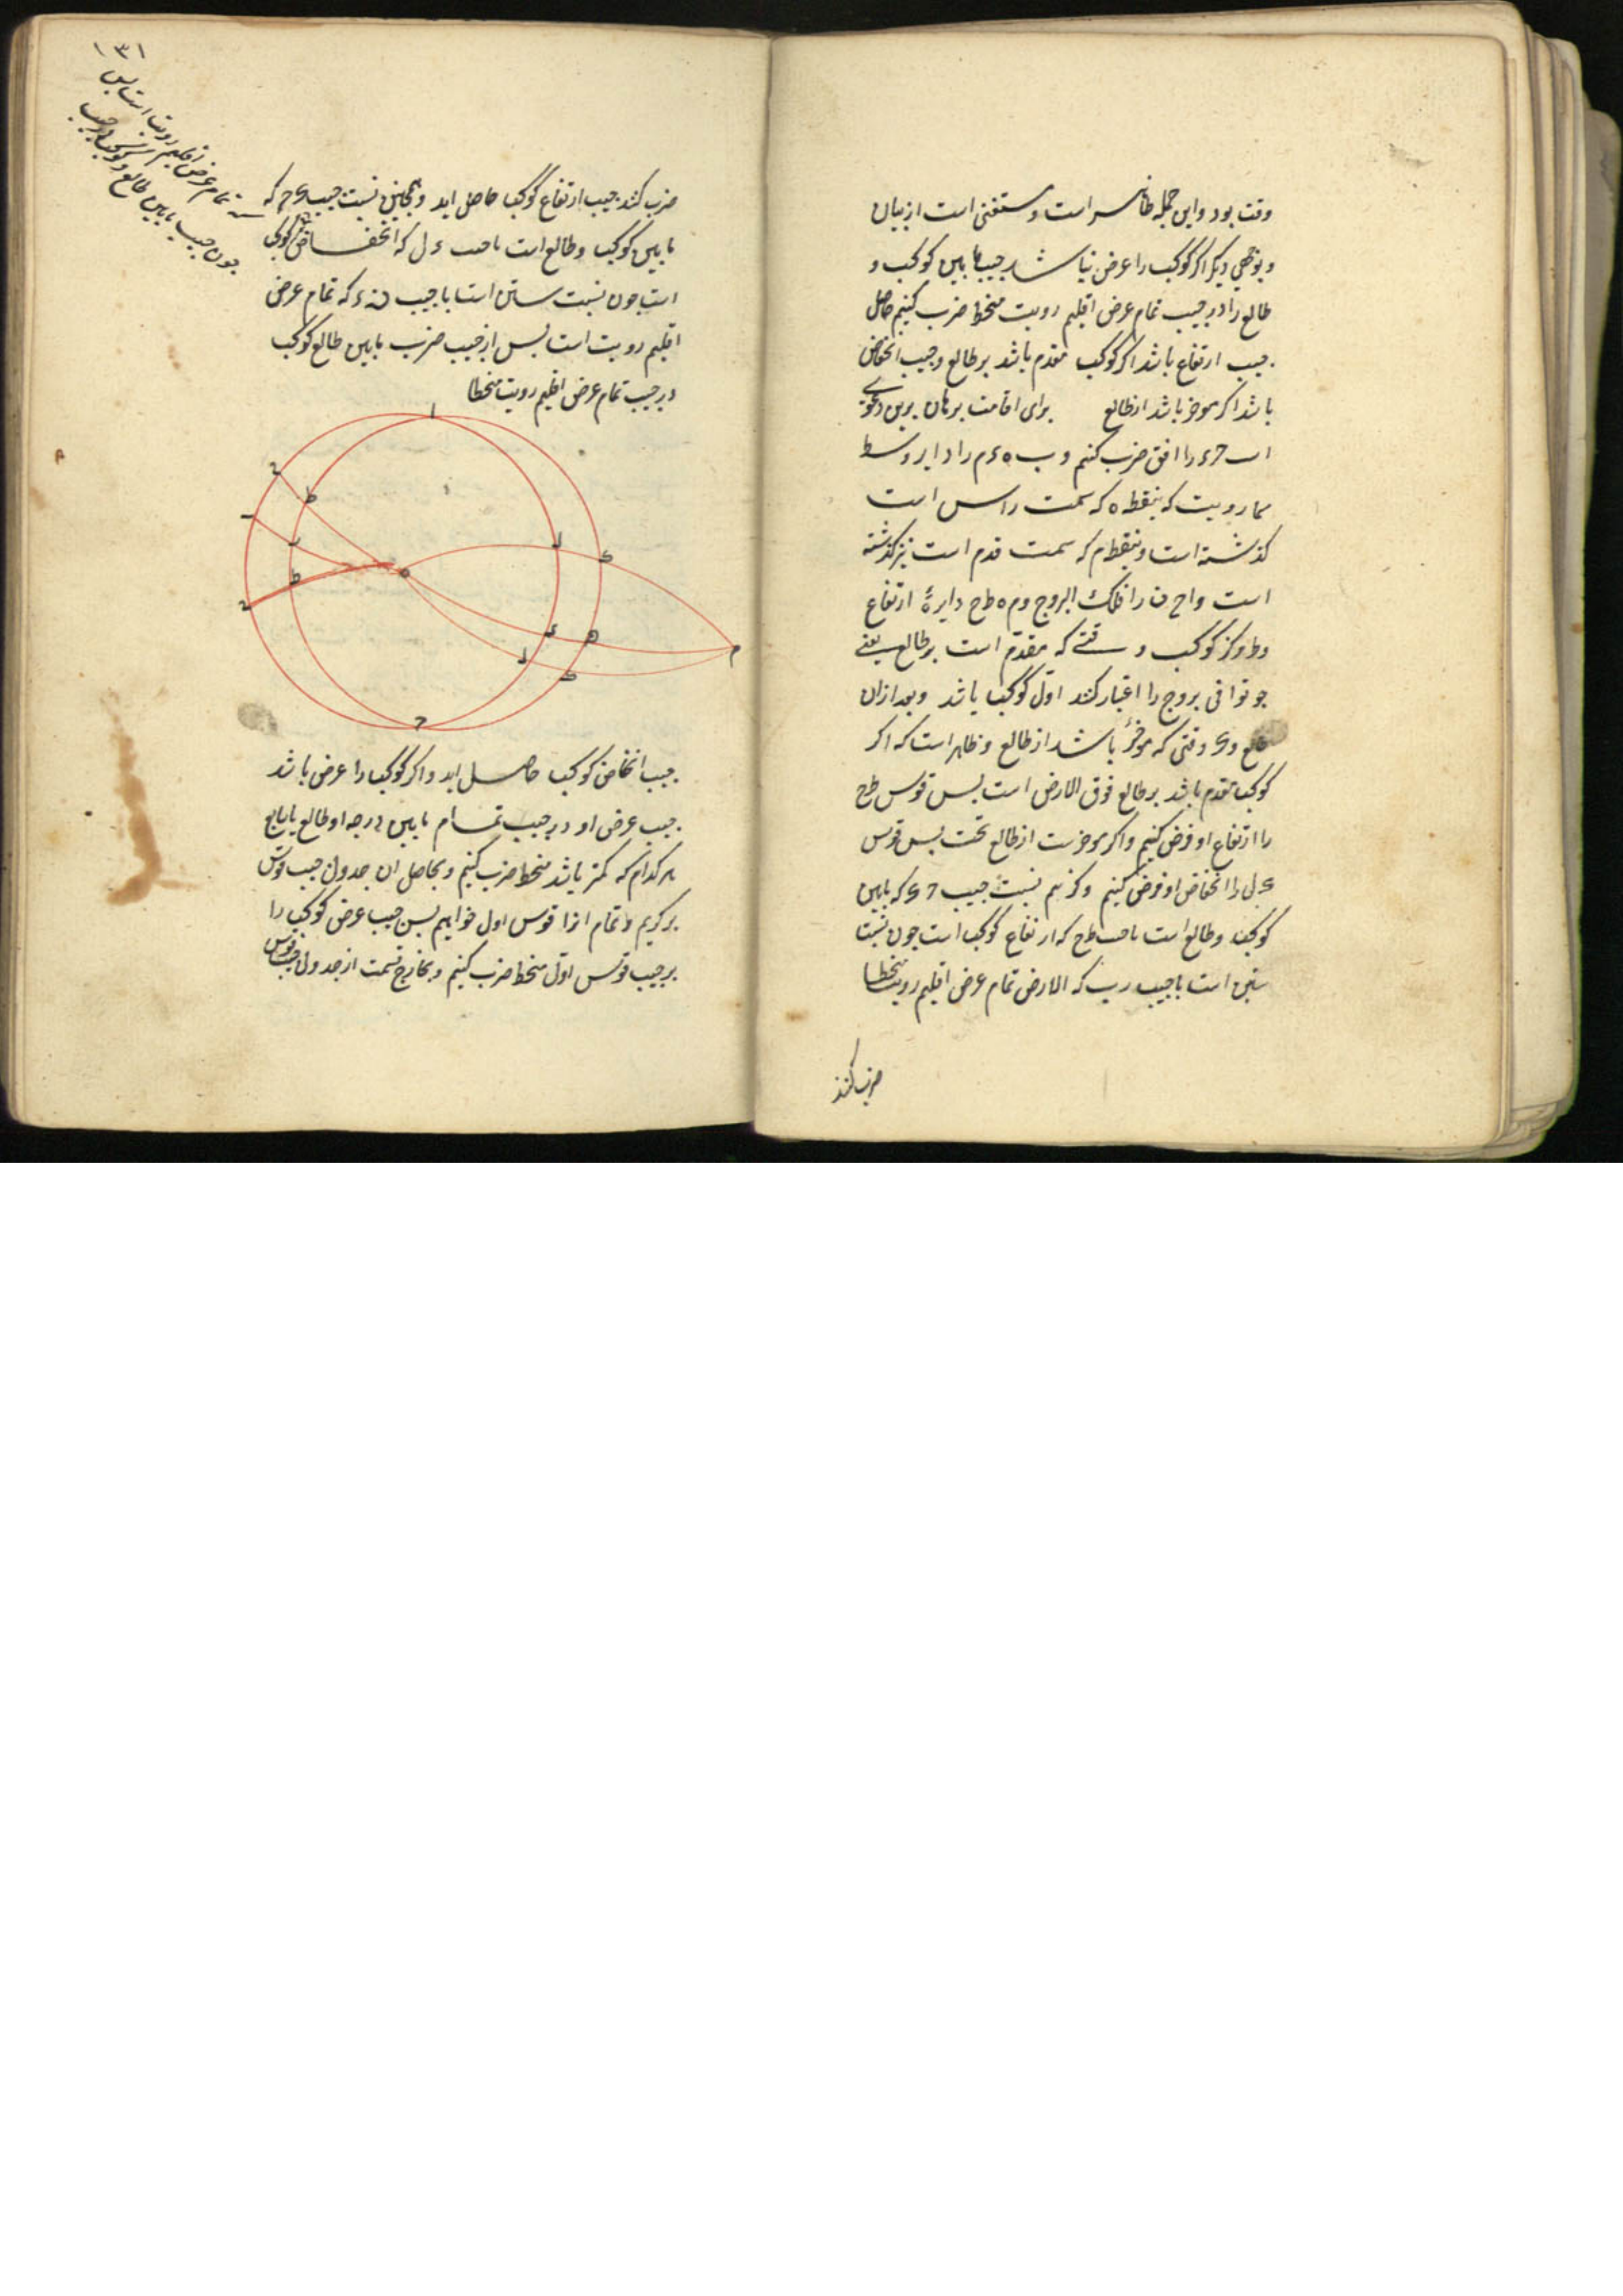 وقت بود و این جمله ظاهر است و مستغنی است از بیان
و بوجهی دیگر اگر کوکب را عرض نباشد جیب مابین کوکب و
طالع را در جیب تمام عرض اقلیم رویت منحط ضرب کنیم حاصل
جیب ارتفاع باشد اگر کوکب مقدم باشد بر طالع و جیب انخفاض
باشد اگر موخر باشد از طالع برای اقامت برهان برین دعوی
ا ب ح د را افق ضرب کنیم و ب ه د م را دایر وسط
سما رویت که بنقطه ه که سمت راس است
کذشته است و بنقطه م که سمت قدم است نیز کذشته
است و ا ح ن را فلک البروج و م ه ط ح دایرهٔ ارتفاع
و ط مرکز کوکب وقتی که مقدم است بر طالع یعنی
جو توافی بروج را اعتبار کنند اول کوکب باشد و بعد ازان
طالع و ی وقتی که موخر باشد از طالع و ظاهر است که اکر
کوکب مقدم باشد بر طالع فوق الارض است بس قوس ط ح
را ارتفاع او فرض کنیم و اکر موخرست از طالع تحت بس قوس
ی ل را انخفاض او فرض کنیم و کوئیم نسبت جیب ر ی که مابین
کوکب و طالع است با جیب ط ح که ارتفاع کوکب است جون نسبت
ستین است با جیب ر ب که الارض تمام عرض اقلیم رویت منحطا
ضرب کنند
۱۳۱
ضرب کنند جیب ارتفاع کوکب حاصل اید و همجنین نسبت جیب ی ح که
مابین کوکب و طالع است با جیب ی ل که انخفاض کوکب
است جون نسبت ستین است با جیب ن د که تمام عرض
اقلیم رویت است بس از جیب ضرب مابین طالع کوکب
در جیب تمام عرض اقلیم رویت منحطا
جیب انخفاض کوکب حاصل اید و اکر کوکب را عرض باشد
جیب عرض او در جیب تمام مابین درجه او طالع یا سابع
هر کدام که کمتر باشد منحط ضرب کنیم و بحاصل ان جدول جیب قوس
بر کریم و تمام انرا قوس اول خوانیم بس جیب عرض کوکب را
بر جیب قوس اول منحط ضرب کنیم و بخارج قسمت از جدول جیب قوس
تمام عرض اقلیم رویت است بس
جون جیب مابین طالع و کوکب در جیب